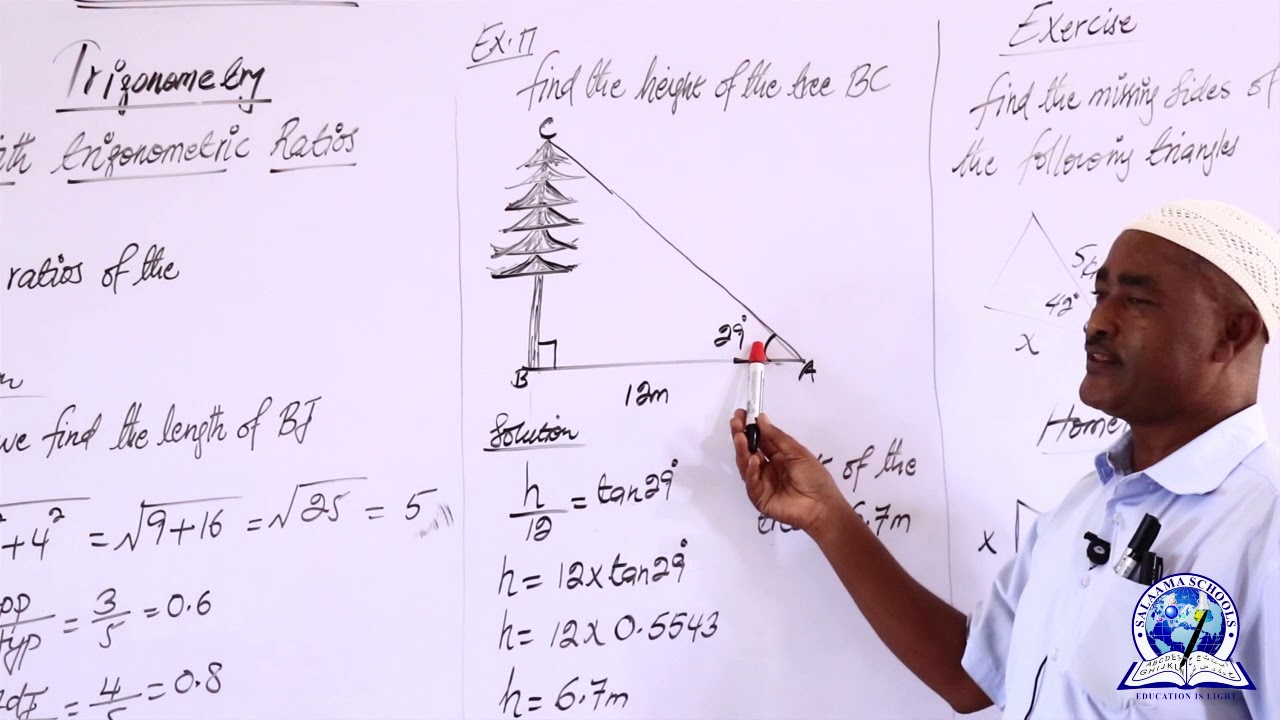 Trigonometry
ith trigonometric Ratios
ratios of the
we find the length of BJ
+4² = √9+16 = √25 = 5
= 3/5 = 0.6
= 4/5 = 0.8
Ex. 17
find the height of the tree BC
C
29°
B
A
12m
Solution
h/12 = tan29°
h = 12 x tan29°
h = 12 x 0.5543
h = 6.7m
of the
6.7m
Exercise
find the missing sides of
the following triangles
5
42°
x
x
SALAAMA SCHOOLS
EDUCATION IS LIGHT